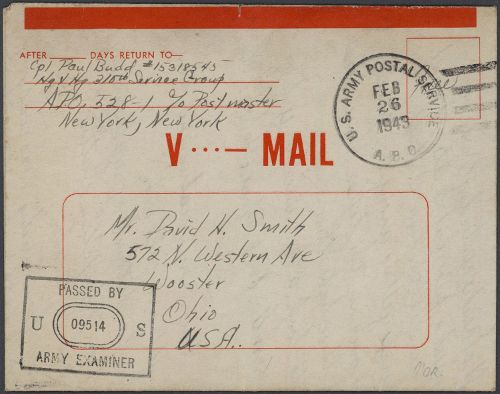 AFTER ____ DAYS RETURN TO—
Cpl Paul Budd #15318545
Hq & Hq 210th Service Group
A.P.O. 528-1 c/o Postmaster
New York, New York
U. S. ARMY POSTAL SERVICE
FEB
26
1943
A. P. O.
V ···— MAIL
Mr. David H. Smith
572 N. Western Ave
Wooster
Ohio
USA.
PASSED BY
U 09514 S
ARMY EXAMINER